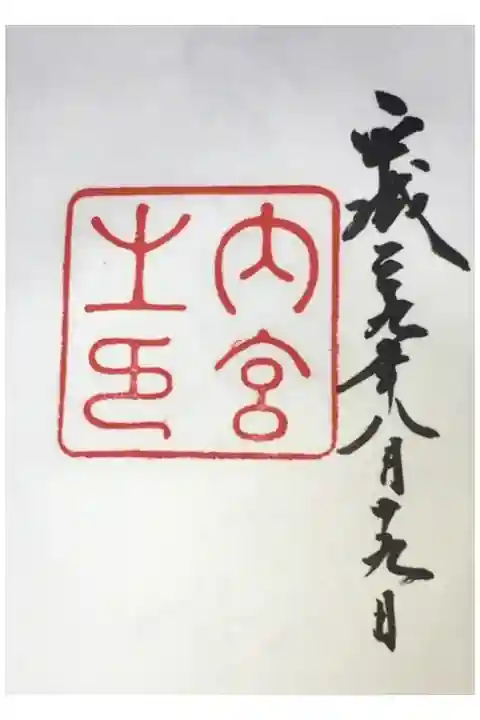 平成二九年八月十九日
内宮
之印